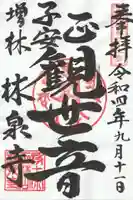 奉拝 令和四年九月十一日
正観世音
子安観音
増林 林泉寺